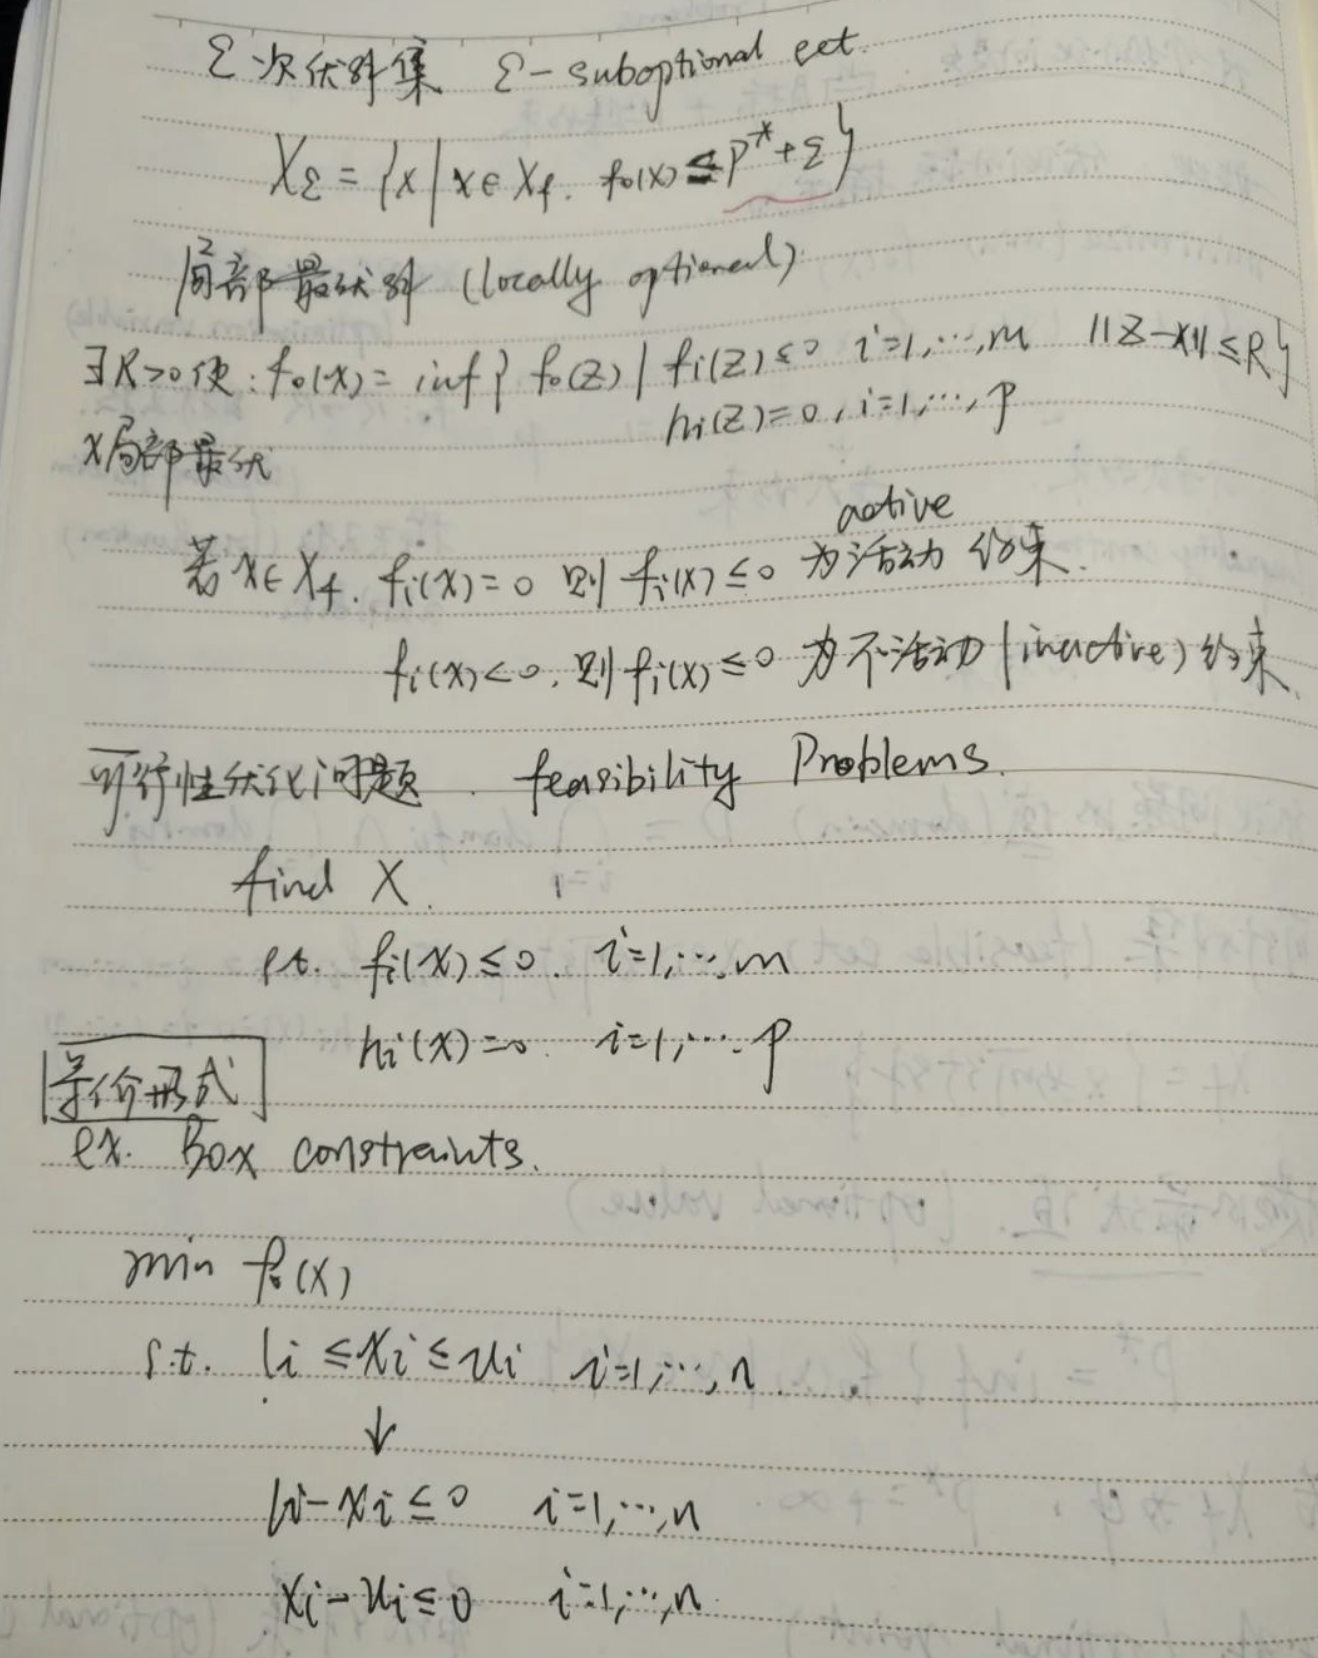 ε次优解集 ε-suboptional set.
Xε = {x | x∈Xf. f₀(x) ≤ p*+ε}
局部最优解 (locally optional)
∃R>0使: f₀(x) = inf { f₀(z) | fi(z)≤0 i=1,…,m ||z-x||≤R}
hi(z)=0, i=1,…,p
x局部最优
active
若x∈Xf. fi(x)=0 则 fi(x)≤0 为活动 约束.
fi(x)<0, 则 fi(x)≤0 为不活动 (inactive) 约束.
可行性优化问题. feasibility Problems.
find X.
s.t. fi(x)≤0. i=1,…,m
hi(x)=0. i=1,….p
等价形式
ex. Box constraints.
min f₀(x)
s.t. li ≤ xi ≤ ui i=1,…,n.
↓
li-xi ≤ 0 i=1,…,n
xi-ui ≤ 0 i=1,…,n